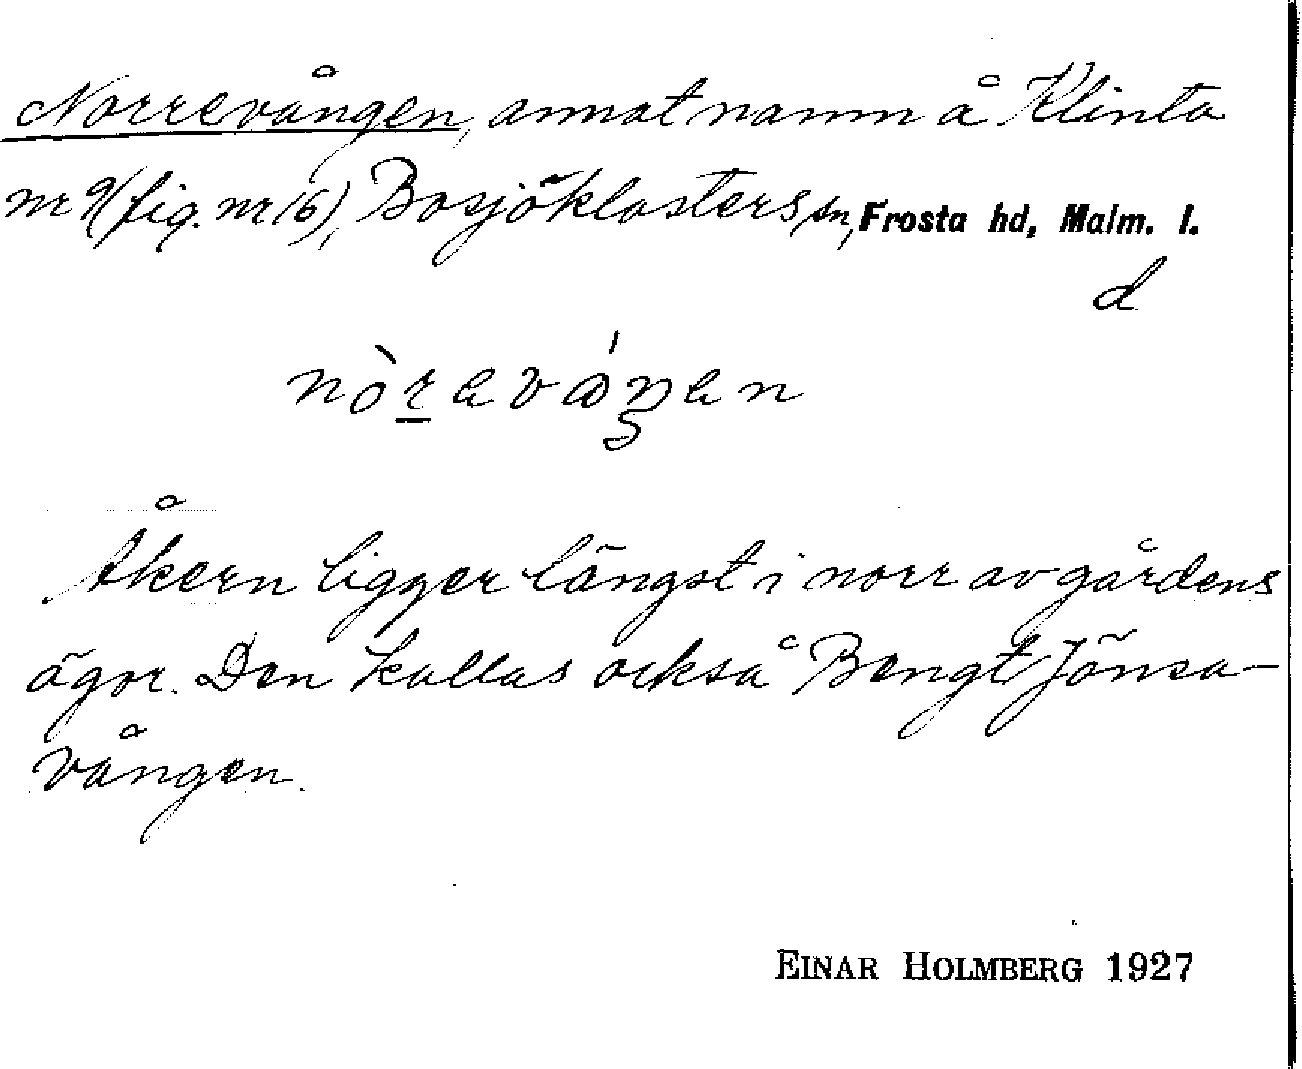 Norrevången, annat namn å Klinta
nr 9 (fig. nr 16), Bosjöklosters sn, Frosta hd, Malm. l.
d
Åkern ligger längst i norr av gårdens
ägor. Den kallas också Bengt Jönsa-
vången.
EINAR HOLMBERG 1927